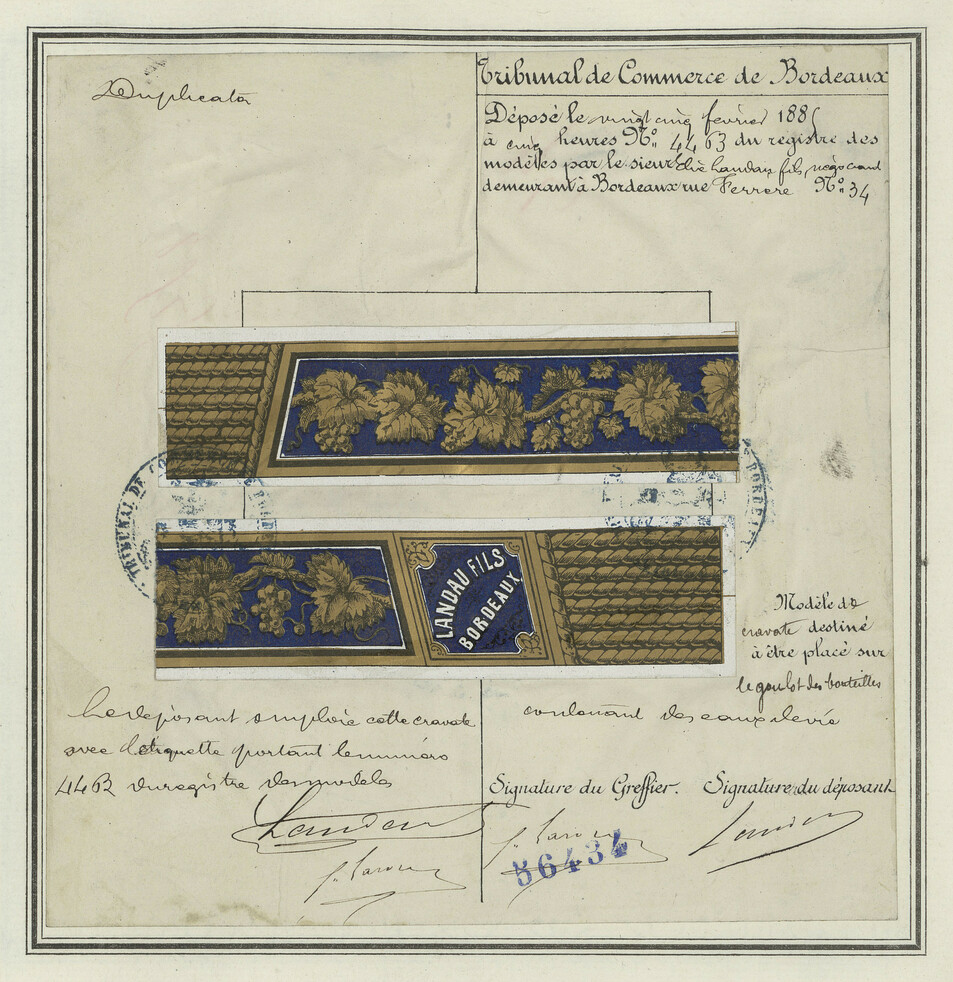 Duplicata
Tribunal de Commerce de Bordeaux
Déposé le vingt cinq février 188
à cinq heures No. 4463 du registre des
modèles par le sieur Elie Landau fils, négociant
demeurant à Bordeaux rue Ferrere No. 34
TRIBUNAL DE COMMERCE
BORDEAUX
LANDAU FILS
BORDEAUX
Modèle de
cravate destiné
à être placé sur
le goulot des bouteilles
contenant des eaux de vie
Le déposant emploie cette cravate
avec l'étiquette portant le numéro
4462 du registre des modèles
Landau
Signature du Greffier. Signature du déposant
Landau
56434